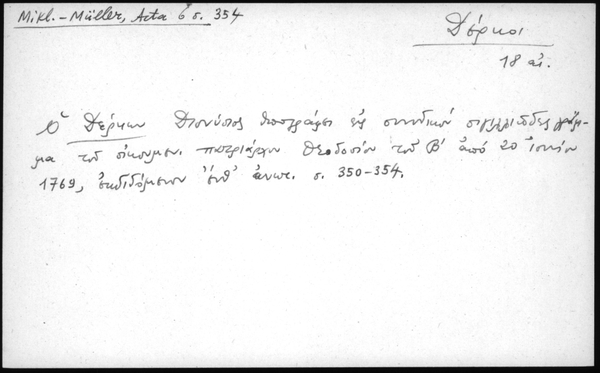 Mikl.-Müller, Acta 6 σ. 354
Δέρκοι
18 αἰ.
Ὁ Δέρκων Διονύσιος ὑπογράφει εἰς συνοδικὸν σιγιλλιῶδες γράμ-
μα τοῦ οἰκουμεν. πατριάρχου Θεοδοσίου τοῦ Β' ἀπὸ 20 Ἰουνίου
1769, ἐκδιδόμενον ἐνθ' ἀνωτ. σ. 350-354.